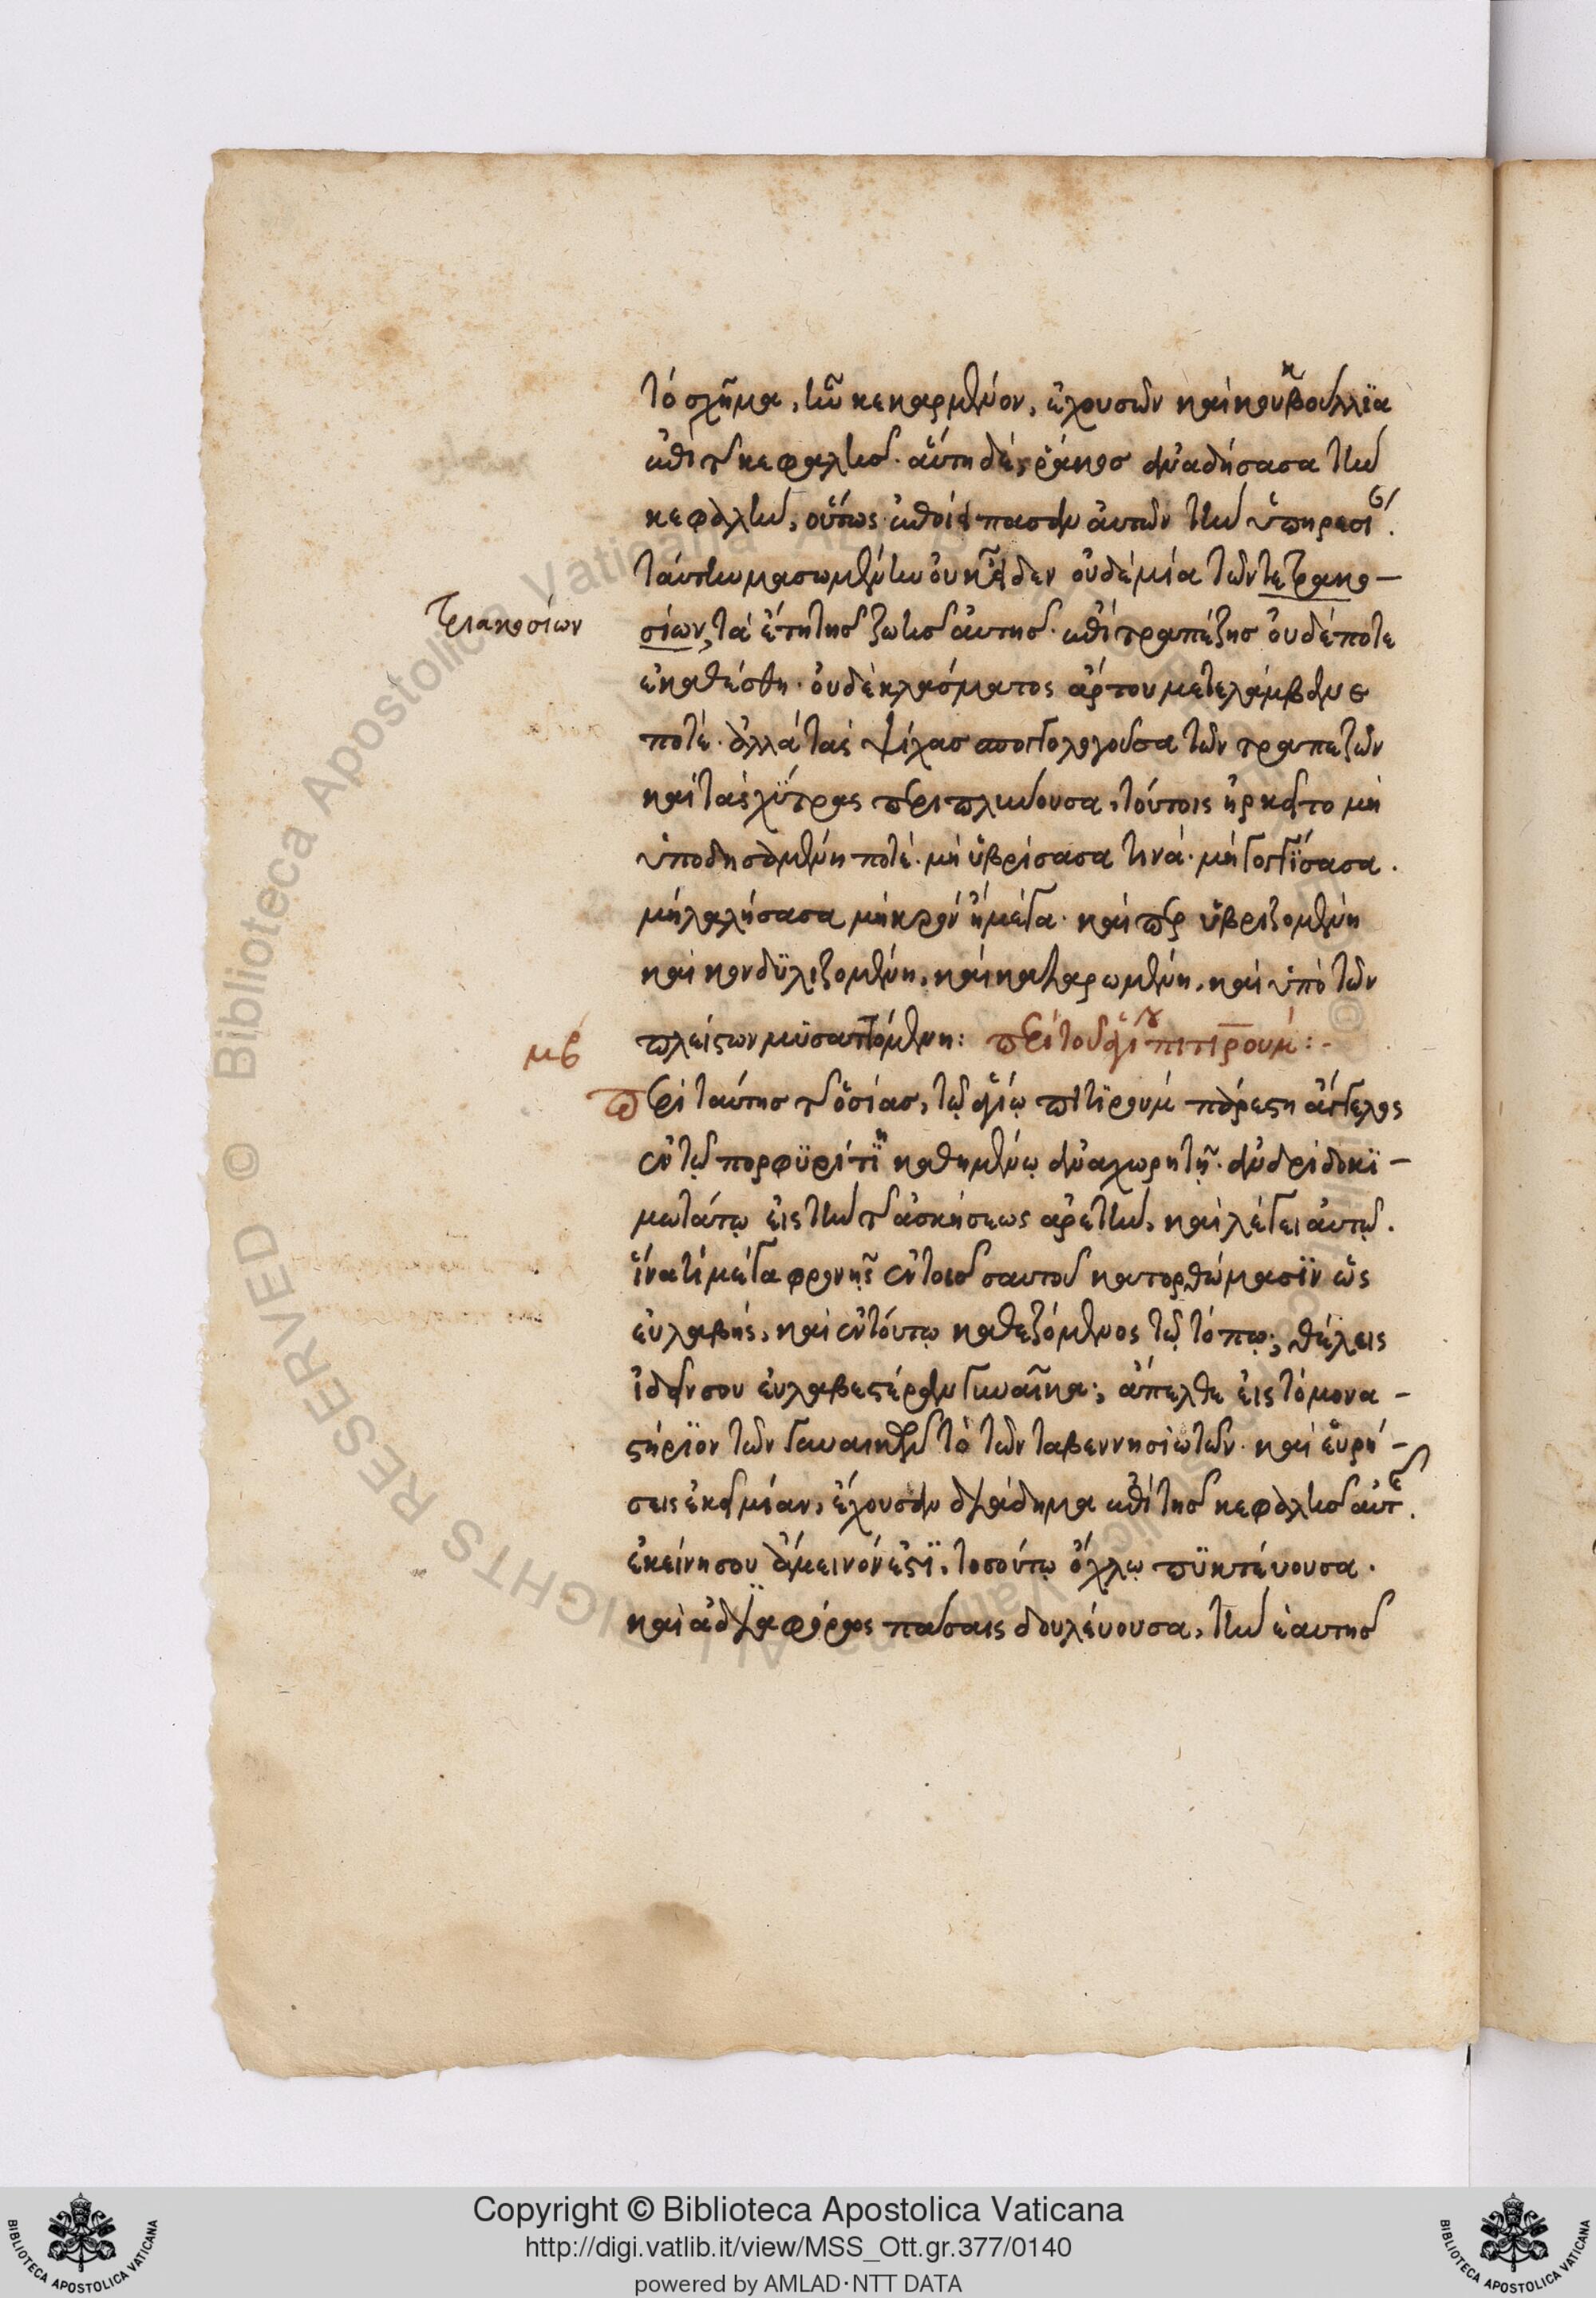 τὸ σχῆμα, τῶν κεκαρμένον, ἐχουσῶν καὶ κουκβούλλϊα
ἐπὶ τῆς κεφαλῆς. αὕτη δὲ, ῥάκος ἀναδήσασα τὴν
κεφαλὴν, οὕτως ἐποίει πασῶν αὐτῶν τὴν ὑπηρεσί
ταύτην μασωμένην οὐκ εἶδεν οὐδὲ μία τῶν τετρακο-
τριακοσίων
σίων, τὰ ἔτη τῆς ζωῆς αὐτῆς. ἐπὶ τραπέζης οὐδέποτε
ἐκαθέσθη. οὐδὲ κλάσματος ἄρτου μετελάμβανε
ποτέ. ἀλλὰ τὰς ψίχας αποσπογγοῦσα τῶν τραπεζῶν
καὶ τὰς χΰτρας περιπλύνουσα, τούτοις ἠρκεῖτο μὴ
ὑποδησαμένη ποτέ. μὴ ὑβρίσασα τινά. μὴ γογγΰσασα.
μὴ λαλήσασα μηκρὸν ἢ μέγα. καίπερ ὑβριζομένη
καὶ κονδϋλιζομένη, καὶ καταρωμένη, καὶ ὑπὸ τῶν
πλείστων μϋσαττομένη: περὶ τοῦ ἁγίου πιτιρούμ:-
μβ
Περὶ ταύτης τῆς ὁσίας, τῷ ἁγίῳ πιτϊρουμ παρέστη ἄγγελος
ἐν τῷ πορφϋρίτϊ καθημένῳ ἀναχωρητῇ. ἀνδρὶ δοκϊ-
μωτάτῳ εἰς τὴν τῆς ἀσκήσεως ἀρετὴν, καὶ λέγει αὐτῷ.
ἵνα τί μέγα φρονῇς ἐν τοῖς σαυτοῦ κατορθώμασϊν ὡς
εὐλαβής, καὶ ἐν τούτῳ καθεζόμενος τῷ τόπῳ; θέλεις
ἰδεῖν σου εὐλαβεστέραν γυναῖκα; ἄπελθε εἰς τὸ μονα-
στήρϊον τῶν γυναικῶν τὸ τῶν ταβεννησιωτῶν. καὶ εὑρή-
σεις ἐκεῖ μίαν, ἔχουσαν διάδημα ἐπὶ τῆς κεφαλῆς αὐτῆς.
ἐκείνη σου ἄμεινόν ἐστϊ, τοσούτῳ ὄχλῳ πϋκτεύουσα.
καὶ ἀδιαφόρως πάσαις δουλεύουσα, τὴν ἑαυτῆς
Copyright © Biblioteca Apostolica Vaticana
http://digi.vatlib.it/view/MSS_Ott.gr.377/0140
powered by AMLAD·NTT DATA